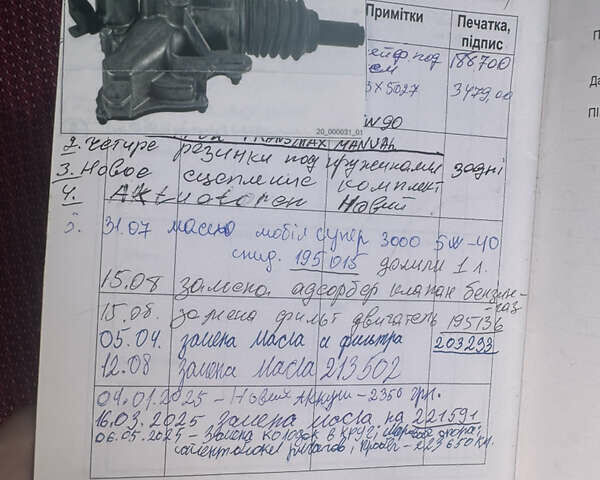 Примітки Печатка, підпис
188700
3479,00
20_000031_01
TRANSMAX MANUAL
2. Четире резинки под пружинами задні
3. Новое сцепление комплект
4. Новий
31.07 масло мобіл супер 3000 5W-40
спид. 195015 долили 1 л.
15.08 замена адсорбер клапан бензин-
газ
15.08. замена фильт двигатель 195136
05.04. замена масла и фильтра 203293
12.08 замена масла 213502
04.01.2025 - Новий Аккум - 2350 грн.
16.03.2025 замена масла на 221591
06.05.2025 - Замена колодок в круг, шаровая опора,
сайлентблоки рычагов, пробег - 223650 км.